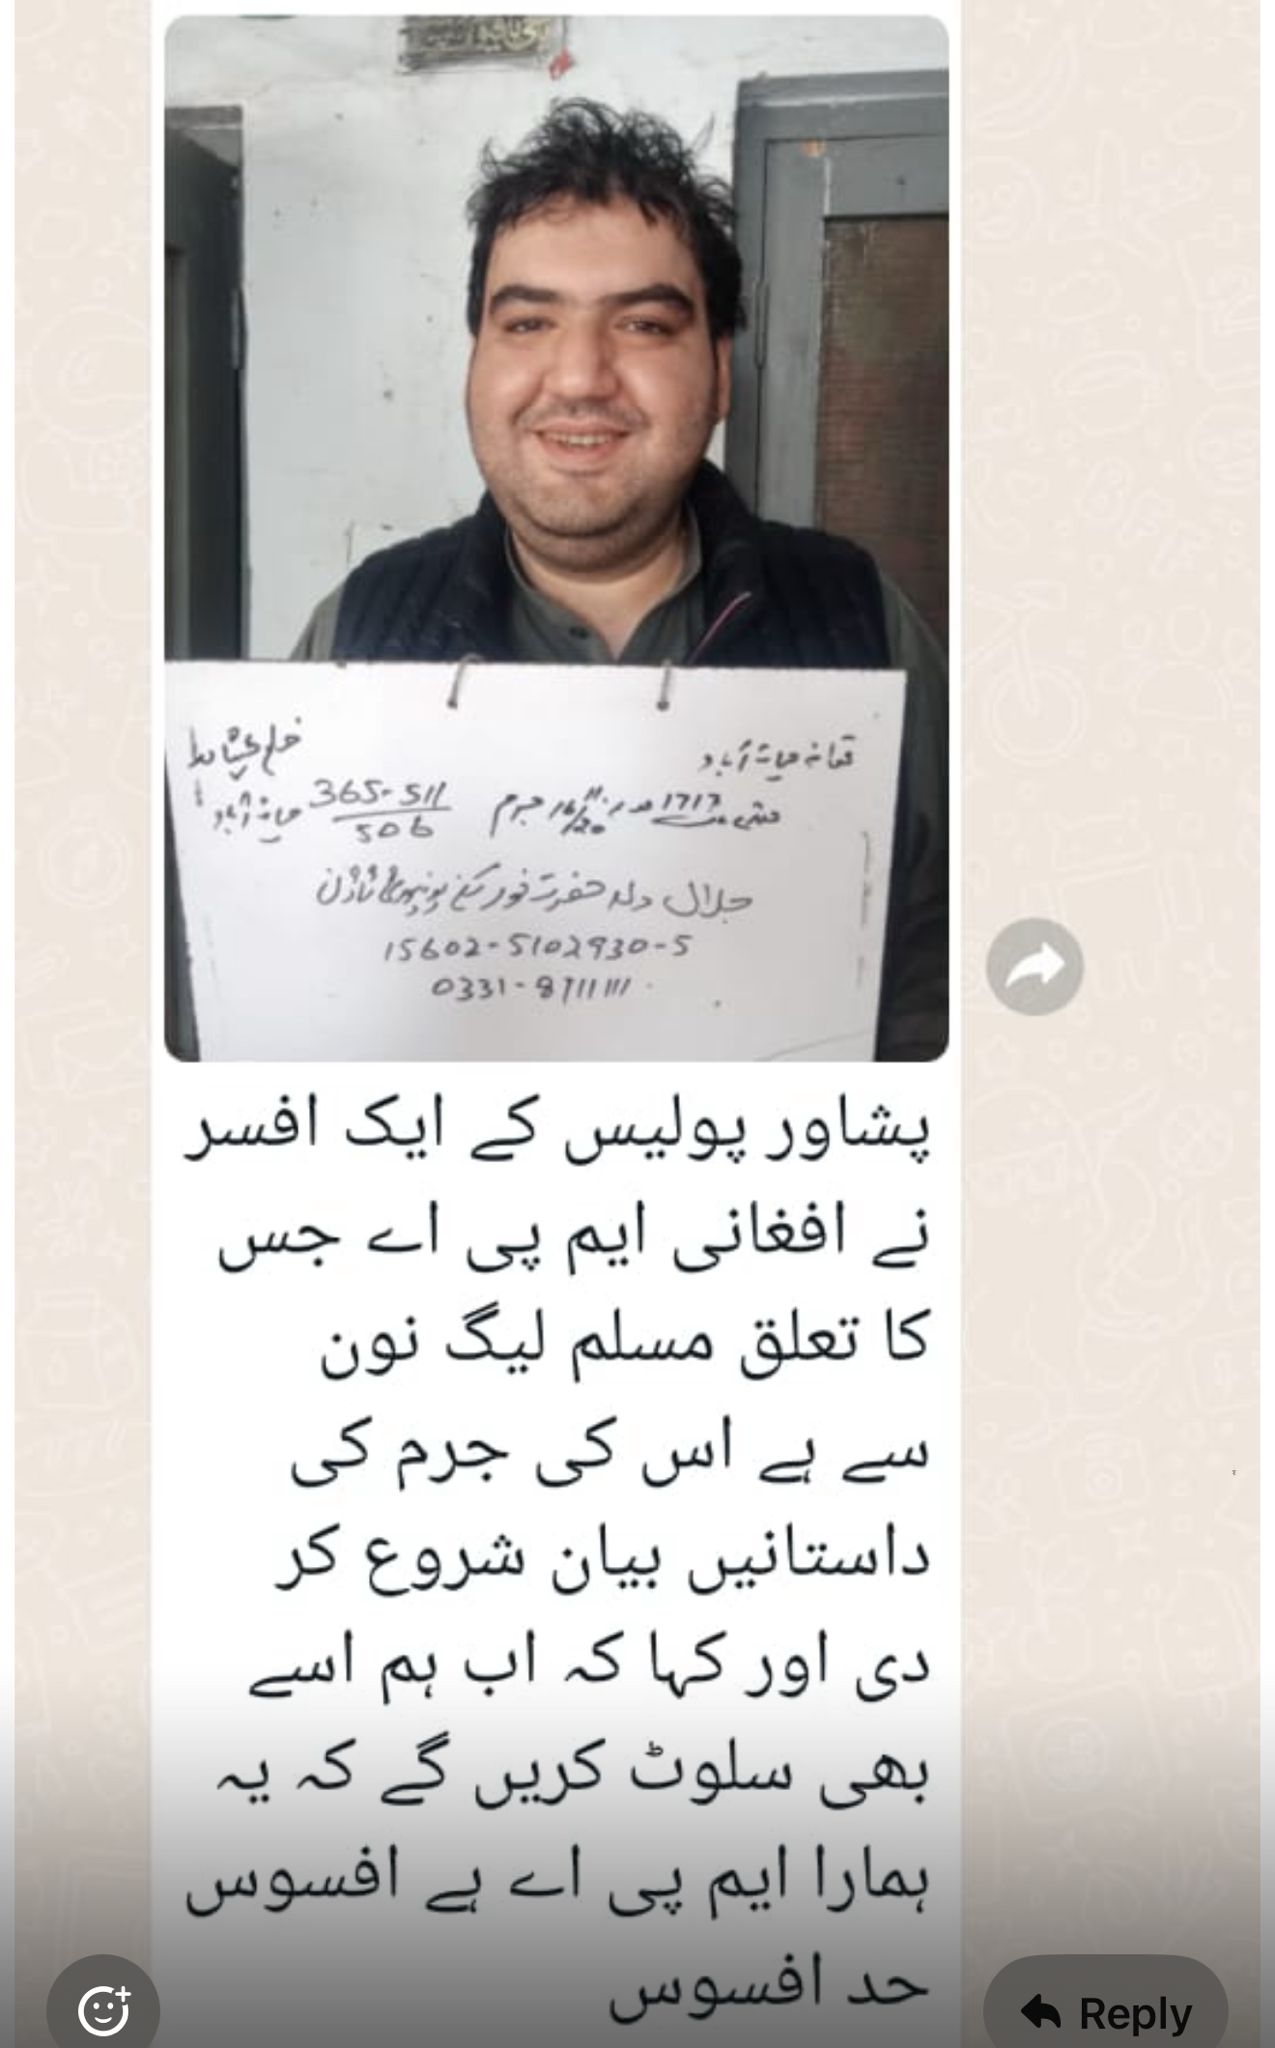 تھانہ حیات آباد
ضلع پشاور
علت 1717 مورخہ 16/11/20 جرم 365-511/506 حیات آباد
جلال ولد حضرت نور یونیورسٹی ٹاؤن
15602-5102930-5
0331-8711111
پشاور پولیس کے ایک افسر
نے افغانی ایم پی اے جس
کا تعلق مسلم لیگ نون
سے ہے اس کی جرم کی
داستانیں بیان شروع کر
دی اور کہا کہ اب ہم اسے
بھی سلوٹ کریں گے کہ یہ
ہمارا ایم پی اے ہے افسوس
حد افسوس
Reply